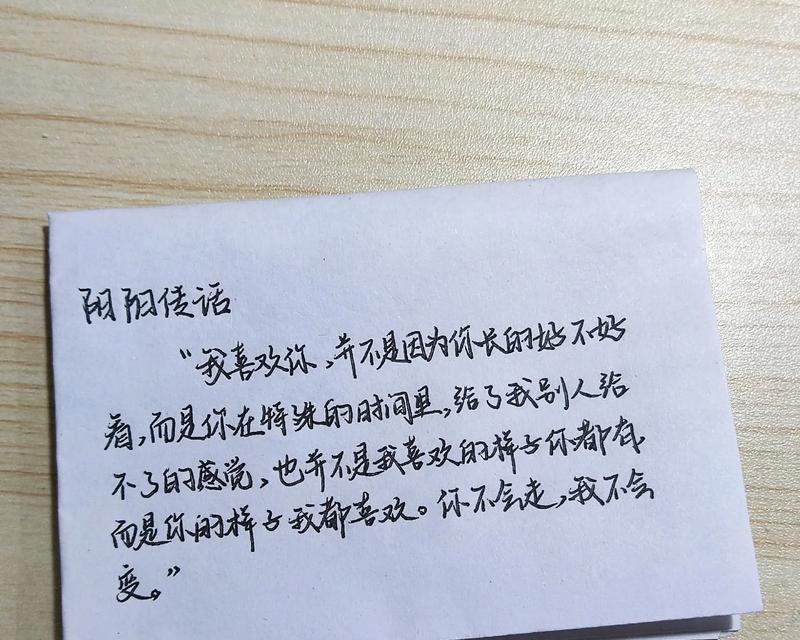 阴阳传话
“我喜欢你,并不是因为你长的好不好
看,而是你在特殊的时间里,给了我别人给
不了的感觉,也并不是我喜欢的样子你都有,
而是你的样子我都喜欢。你不会走,我不会
变。”